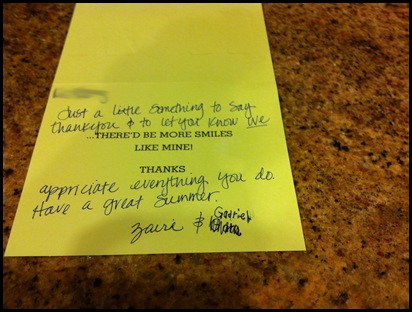 Just a little something to say
thankyou & to let you know we
...THERE'D BE MORE SMILES
LIKE MINE!
THANKS
appriciate everything you do.
Have a great Summer.
&